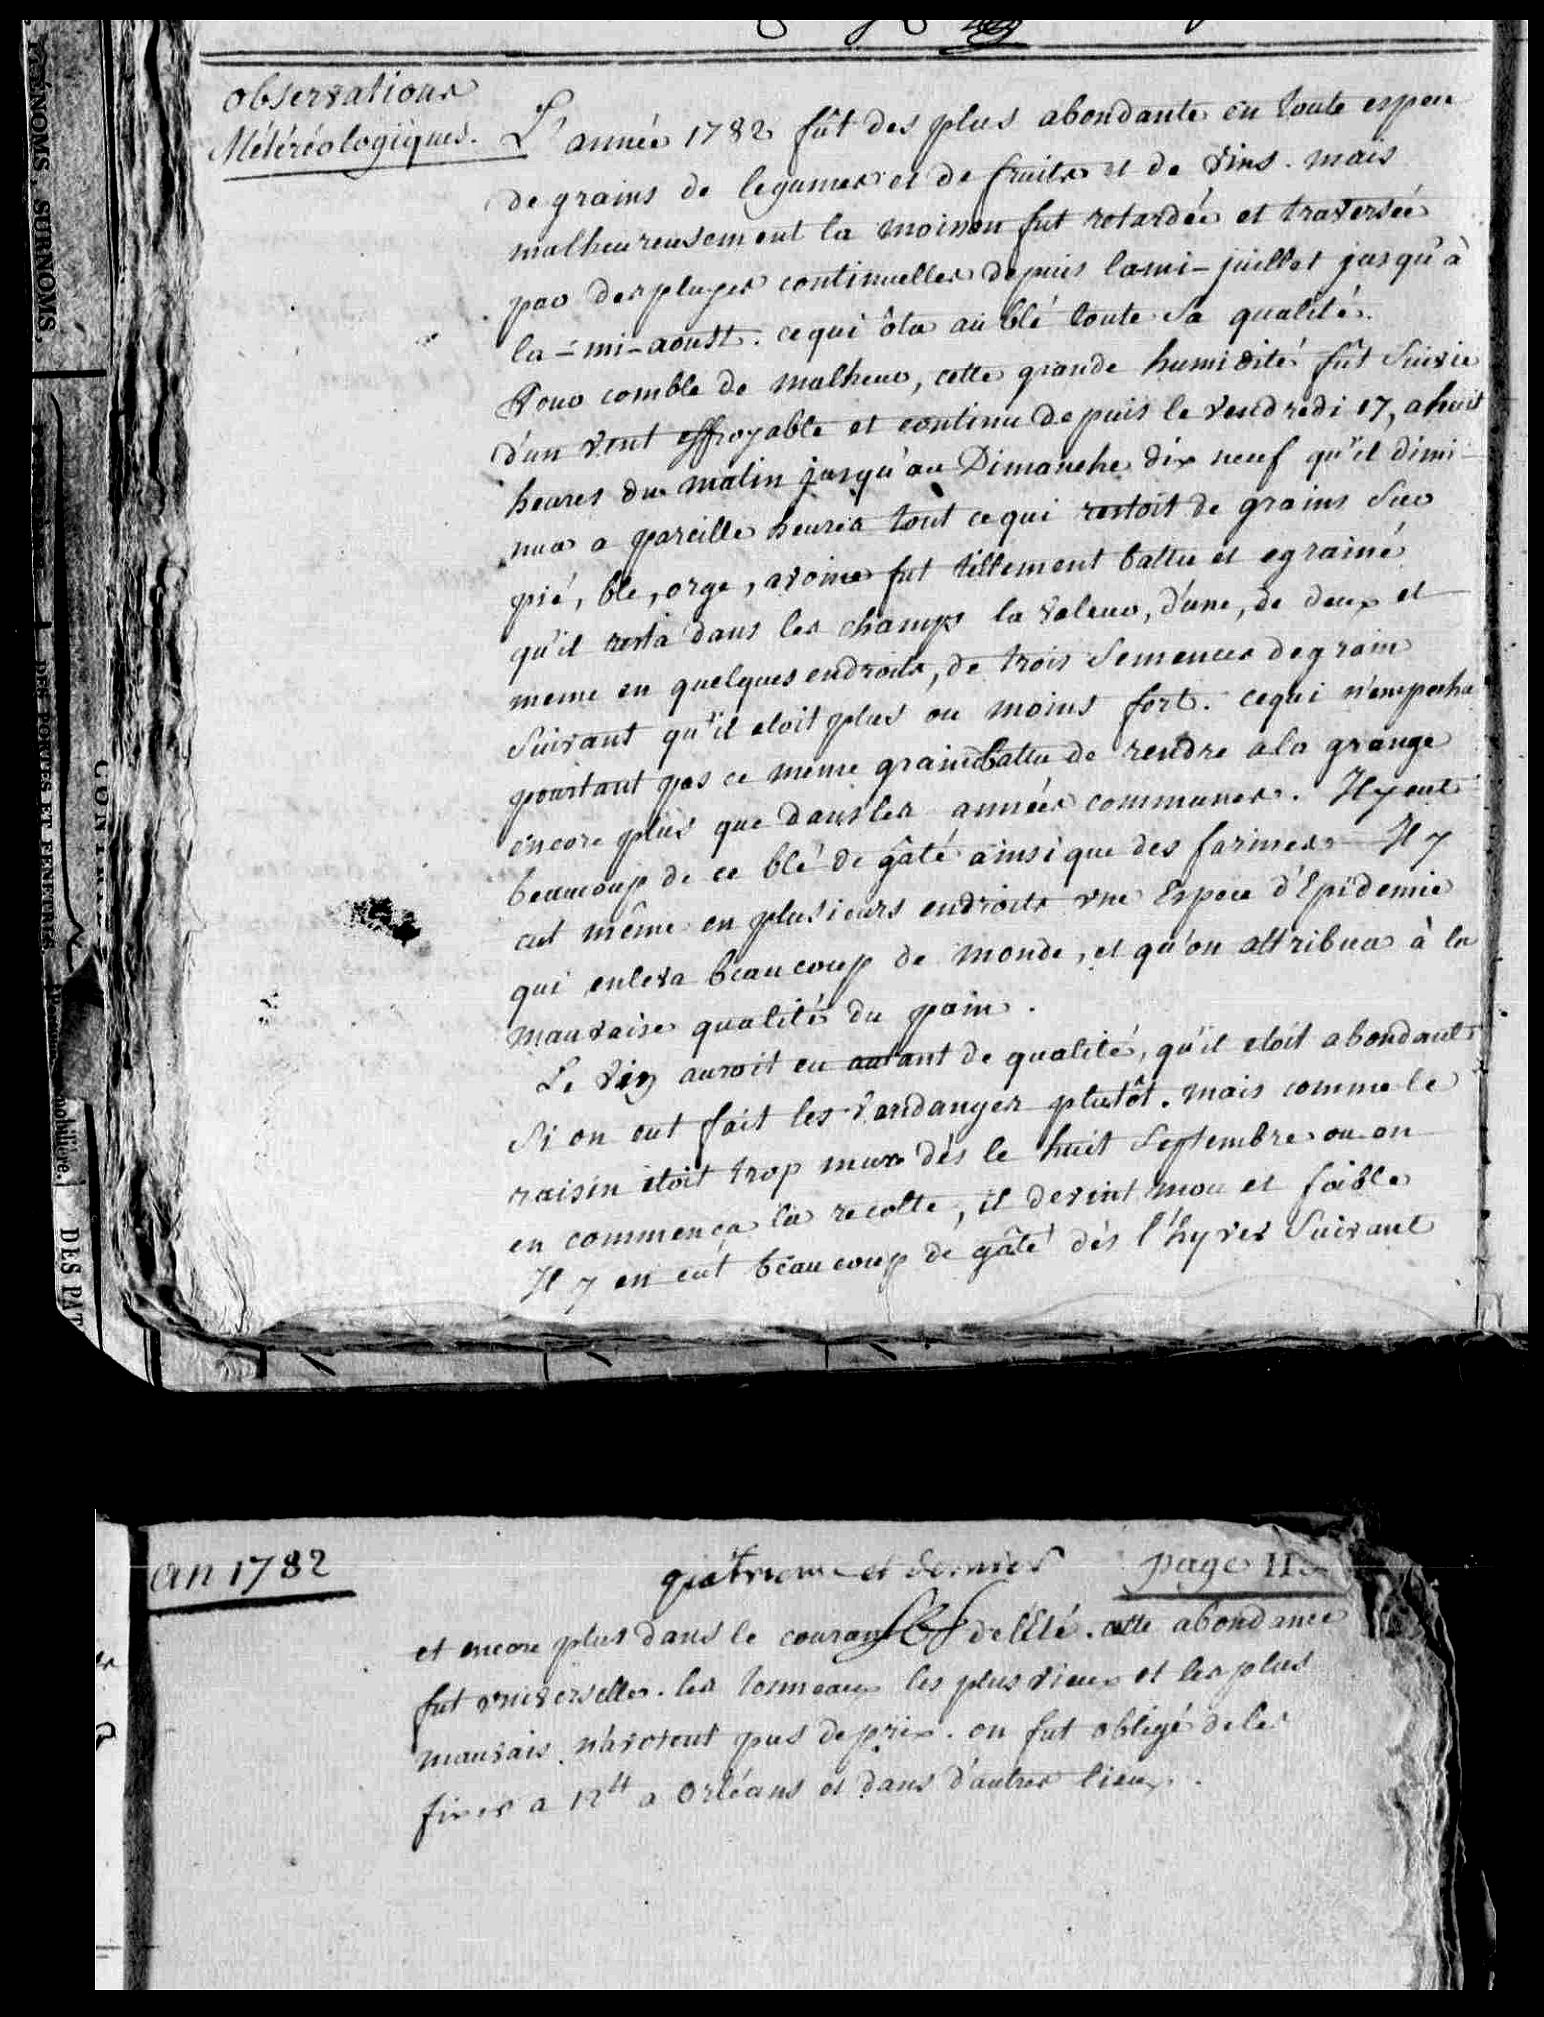 PRÉNOMS, SURNOMS,
DES PORTES ET FENÊTRES
mobilière.
DES PAT
observations
Météréologiques.
L'année 1782 fût des plus abondante en toute espece
de grains de legumes et de fruits et de vins. mais
malheureusement la moinson fut retardée et traversée
par des pluyes continuelles depuis la mi-juillet jusqu'à
la-mi-aoust. ce qui ôta au blé toute sa qualité.
Pour comble de malheur, cette grande humidité fût suivie
d'un vent effroyable et continu depuis le vendredi 17, a huit
heures du matin jusqu'au Dimanche dix neuf qu'il dimi-
nua a pareille heures tout ce qui restoit de grains sur
pié, ble, orge, avoine fut tellement battu et egrainé
qu'il resta dans les champs la valeur, d'une, de deux et
meme en quelques endroits, de trois semences de grain
suivant qu'il etoit plus ou moins fort. ce qui n'empecha
pourtant pas ce meme grain battu de rendre a la grange
encore plus que dans les années communes. Il y eut
beaucoup de ce blé de gâté ainsi que des farines. Il y
eut même en plusieurs endroits une Espece d'Epidemie
qui enleva beaucoup de monde, et qu'on attribua à la
mauvaise qualité du pain.
Le vin auroit eu autant de qualité, qu'il etoit abondant
si on eut fait les vandanges plutôt. mais comme le
raisin etoit trop mur dés le huit septembre ou on
en commença la recolte, il devint mou et foible
Il y en eut beaucoup de gâté dés l'hyver suivant
an 1782
quatrieme et dernier
page II
et encore plus dans le courant de l'Eté. cette abondance
fut universelle. les tonneaux les plus vieux et les plus
mauvais n'avoient pas de prix. on fut obligé de les
fixer a 12tt a Orléans et dans d'autres lieux.